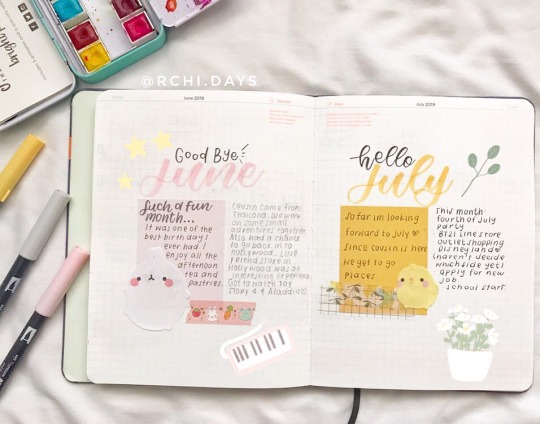 @RCHI.DAYS
June 2019
Good Bye
june
Such a fun
month...
It was one of the
best birthday I
ever had. I
enjoy all the
afternoon
tea and
pastries.
Cousin came from
Thailand
adventures together.
Also had a chance
to go back in to
Hollywood. Live
Hollywood was an
interesting experience
Got to watch Toy
Story 4 & Aladdin!
July 2019
hello
july
So far im looking
forward to July
since cousin is here
we get to go
places.
This month
fourth of July
party
BT21 line store
outlet shopping
Disneyland
(haven't decide
which side yet)
apply for new
job.
school start.